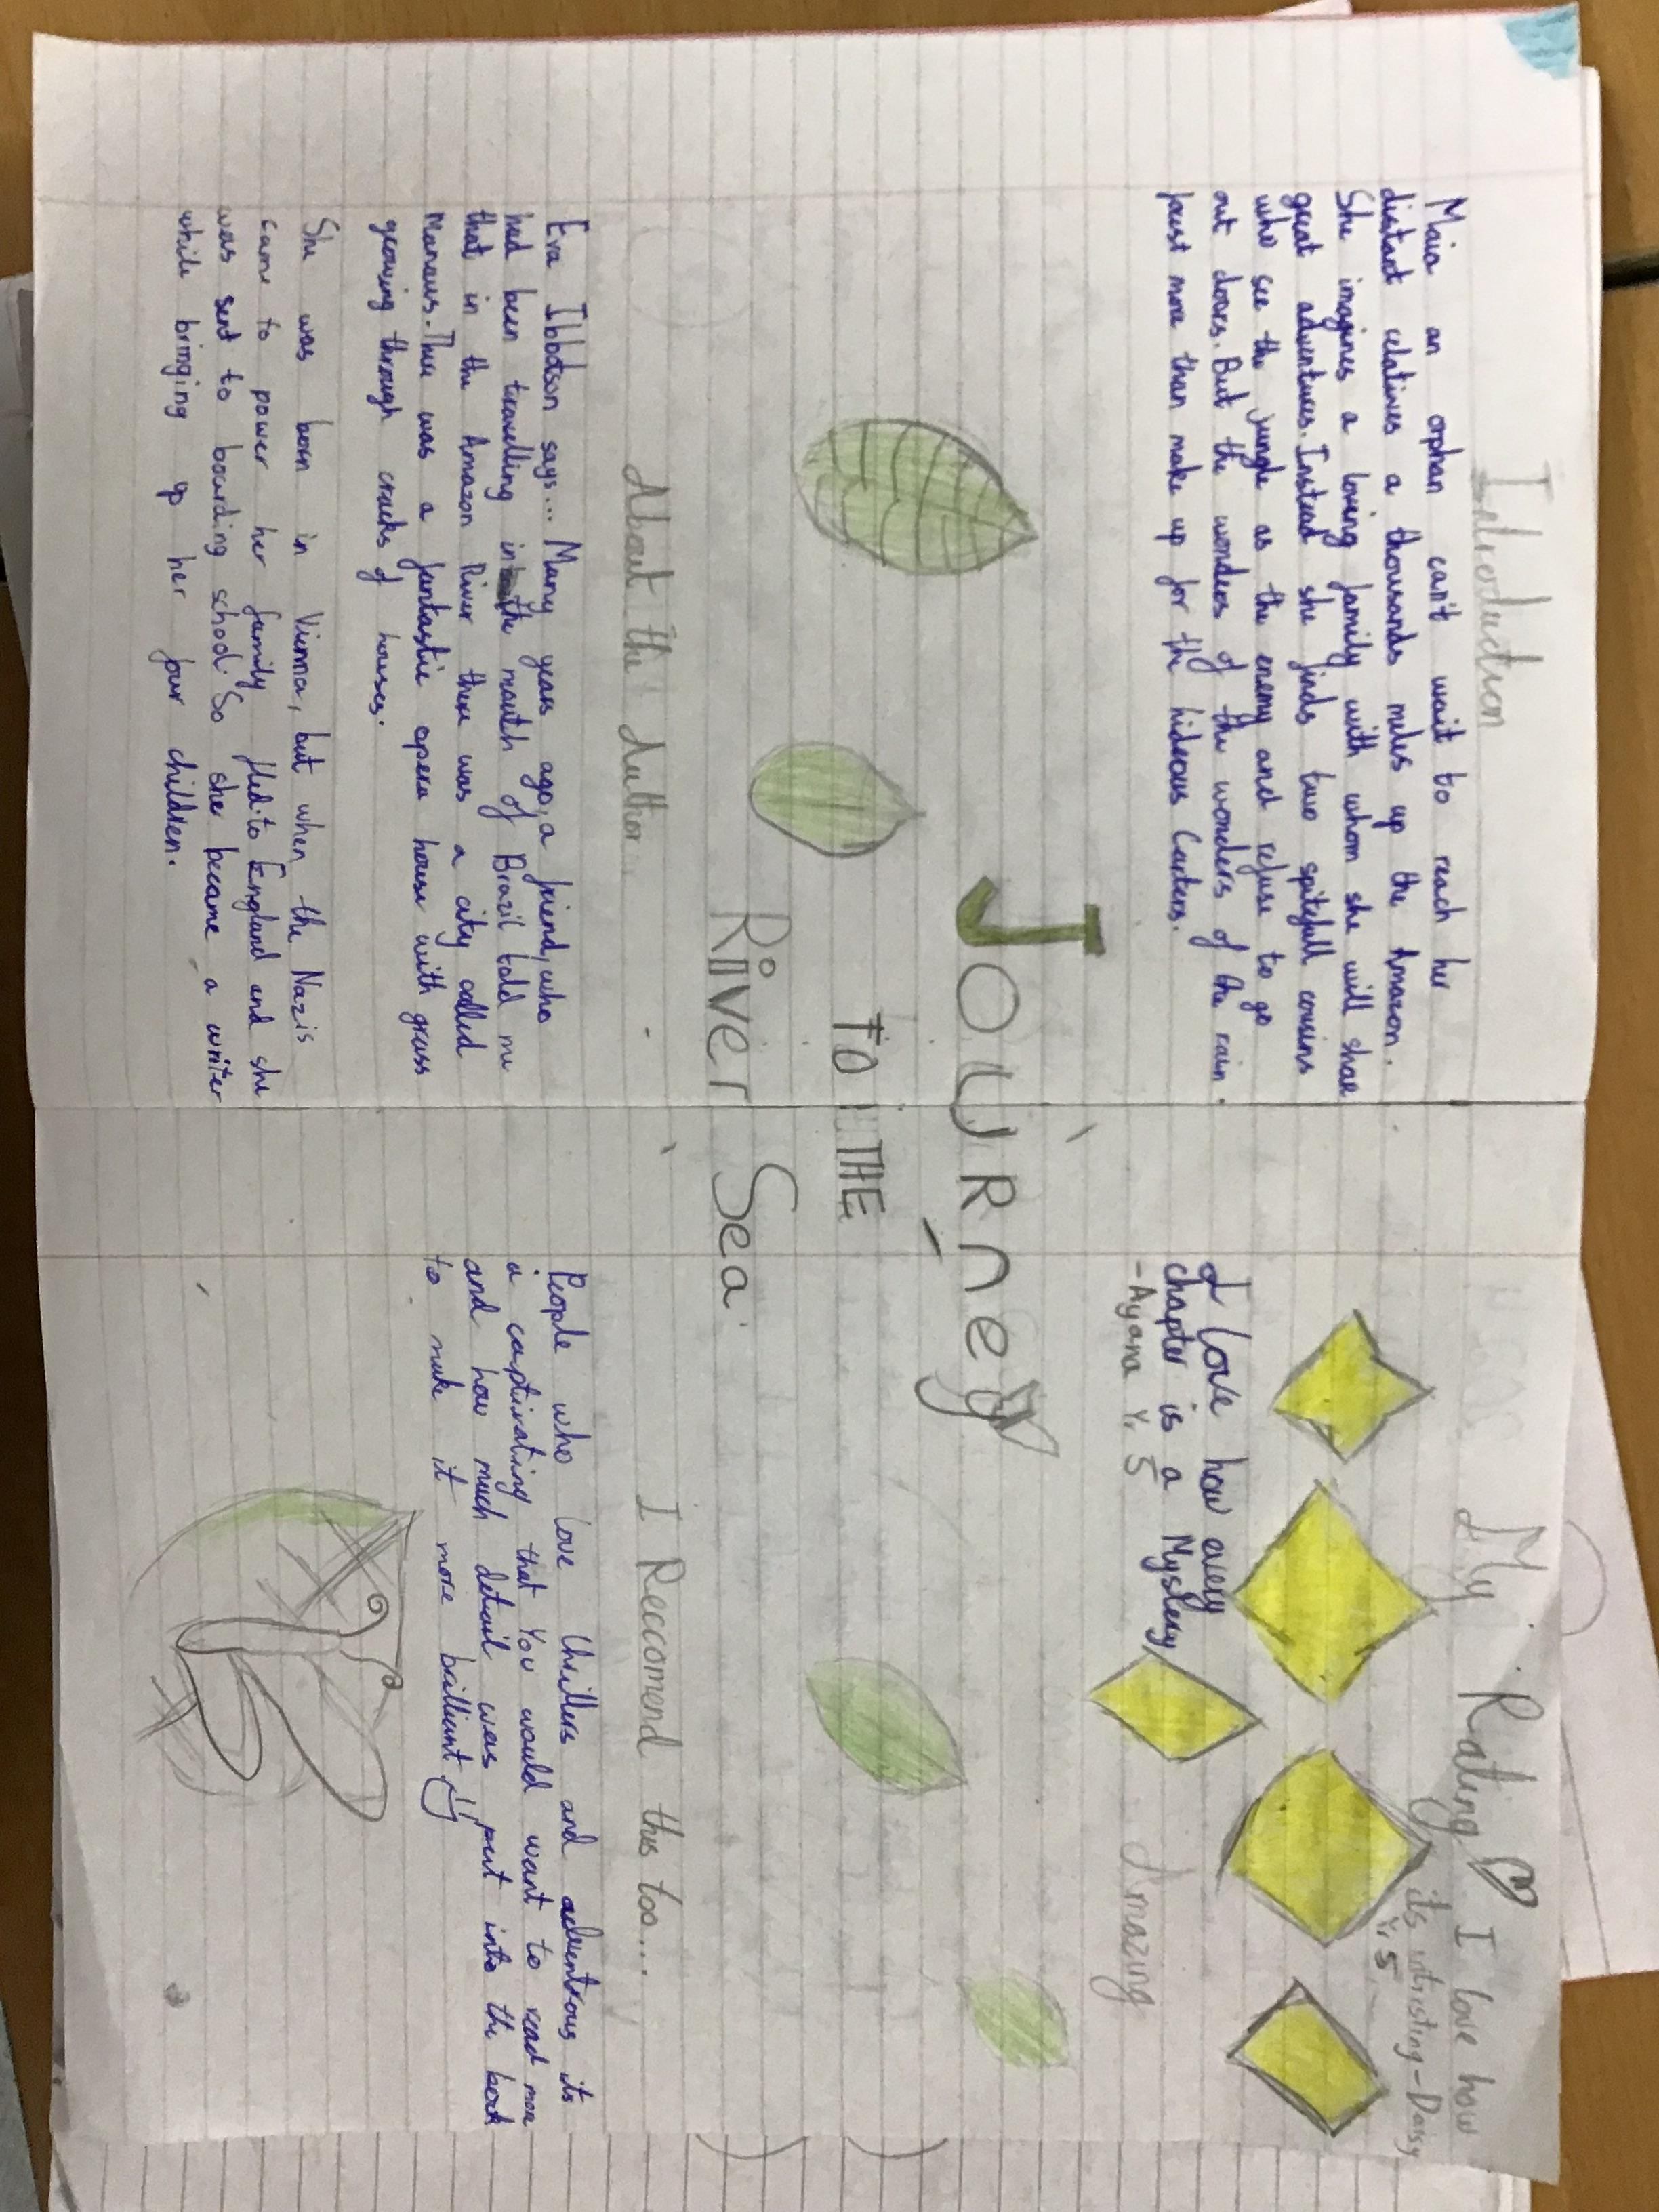 Introduction
Maia an orphan can't wait to reach her
distant relatives a thousands miles up the Amazon.
She imagines a loving family with whom she will share
great adventures. Instead she finds two spitefull cousins
who see the jungle as the enemy and refuse to go
out doors. But the wonders of the wonders of the rain
forest more than make up for the hideous Carters.
My Rating
I love how
its intresting - Daisy
Yr 5
I love how every
chapter is a Mystery
- Ayana Yr 5
Amazing
JOURney
TO THE
River Sea
About the Author
Eva Ibbotson says... Many years ago, a friend, who
had been travelling in the mouth of Brazil told me
that in the Amazon River there was a city called
Manaus. There was a fantastic opera house with grass
growing through cracks of houses.
She was born in Vienna, but when the Nazis
came to power her family fled to England and she
was sent to boarding school. So she became a writer
while bringing up her four children.
I Reccomend this too...
People who love thrillers and adventrous its
a captivating that You would want to read more
and how much detail was put into the book
to make it more brilliant!!